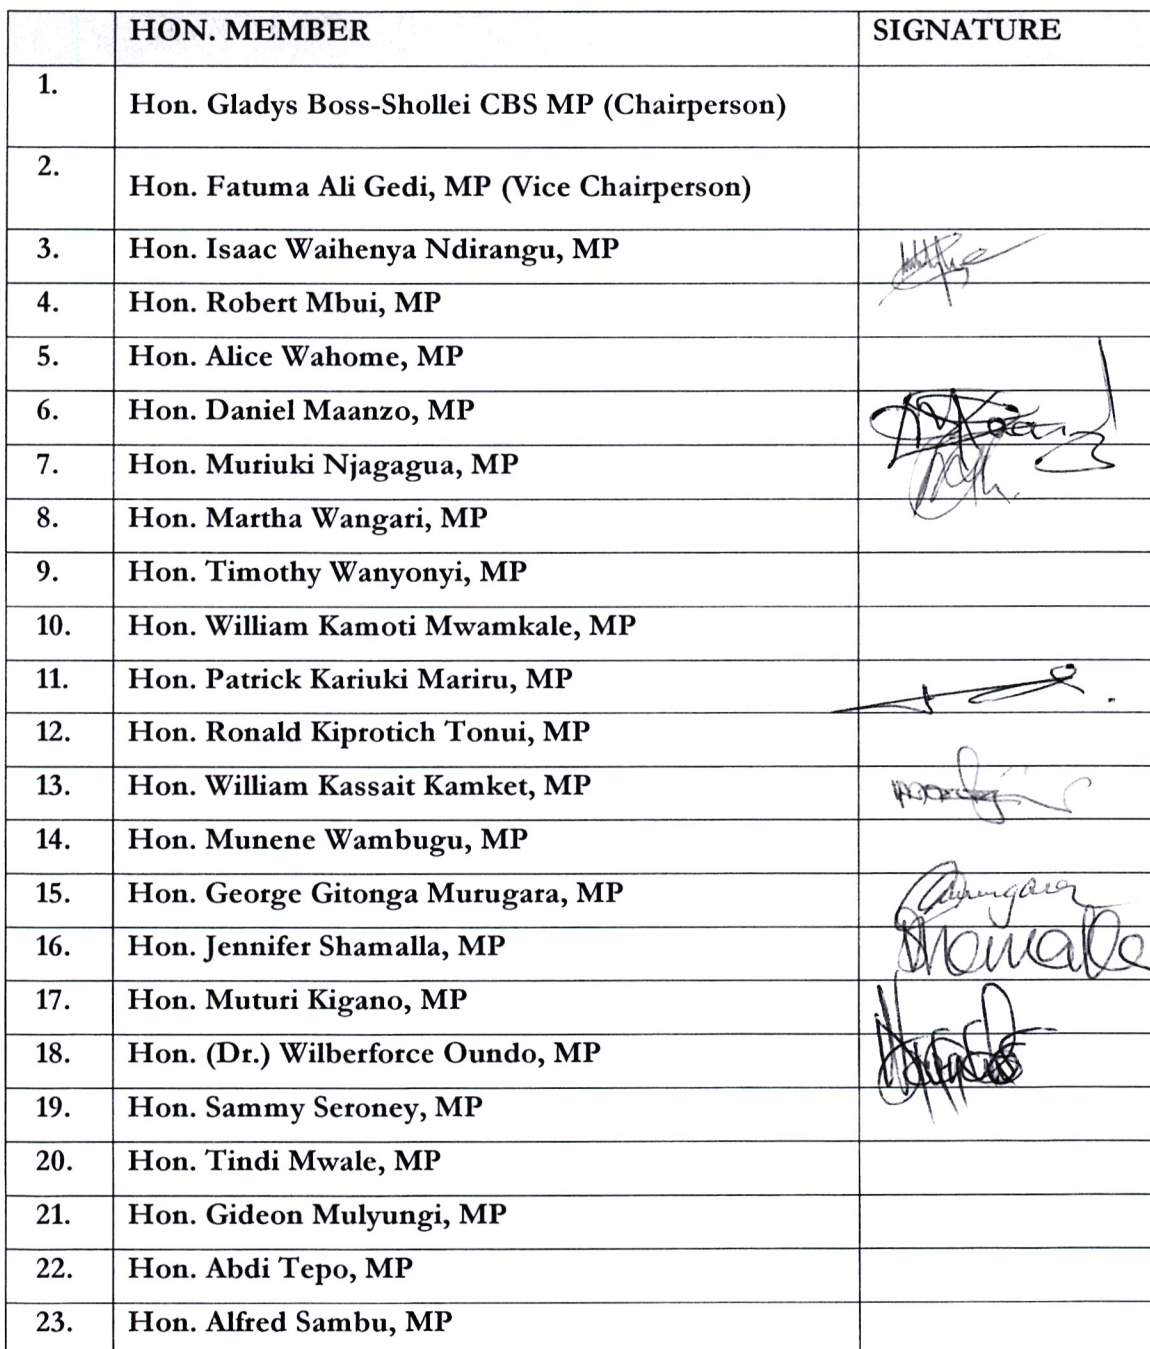 HON. MEMBER SIGNATURE
1. Hon. Gladys Boss-Shollei CBS MP (Chairperson)
2. Hon. Fatuma Ali Gedi, MP (Vice Chairperson)
3. Hon. Isaac Waihenya Ndirangu, MP
4. Hon. Robert Mbui, MP
5. Hon. Alice Wahome, MP
6. Hon. Daniel Maanzo, MP
7. Hon. Muriuki Njagagua, MP
8. Hon. Martha Wangari, MP
9. Hon. Timothy Wanyonyi, MP
10. Hon. William Kamoti Mwamkale, MP
11. Hon. Patrick Kariuki Mariru, MP
12. Hon. Ronald Kiprotich Tonui, MP
13. Hon. William Kassait Kamket, MP
14. Hon. Munene Wambugu, MP
15. Hon. George Gitonga Murugara, MP
16. Hon. Jennifer Shamalla, MP Shamalla
17. Hon. Muturi Kigano, MP
18. Hon. (Dr.) Wilberforce Oundo, MP
19. Hon. Sammy Seroney, MP
20. Hon. Tindi Mwale, MP
21. Hon. Gideon Mulyungi, MP
22. Hon. Abdi Tepo, MP
23. Hon. Alfred Sambu, MP